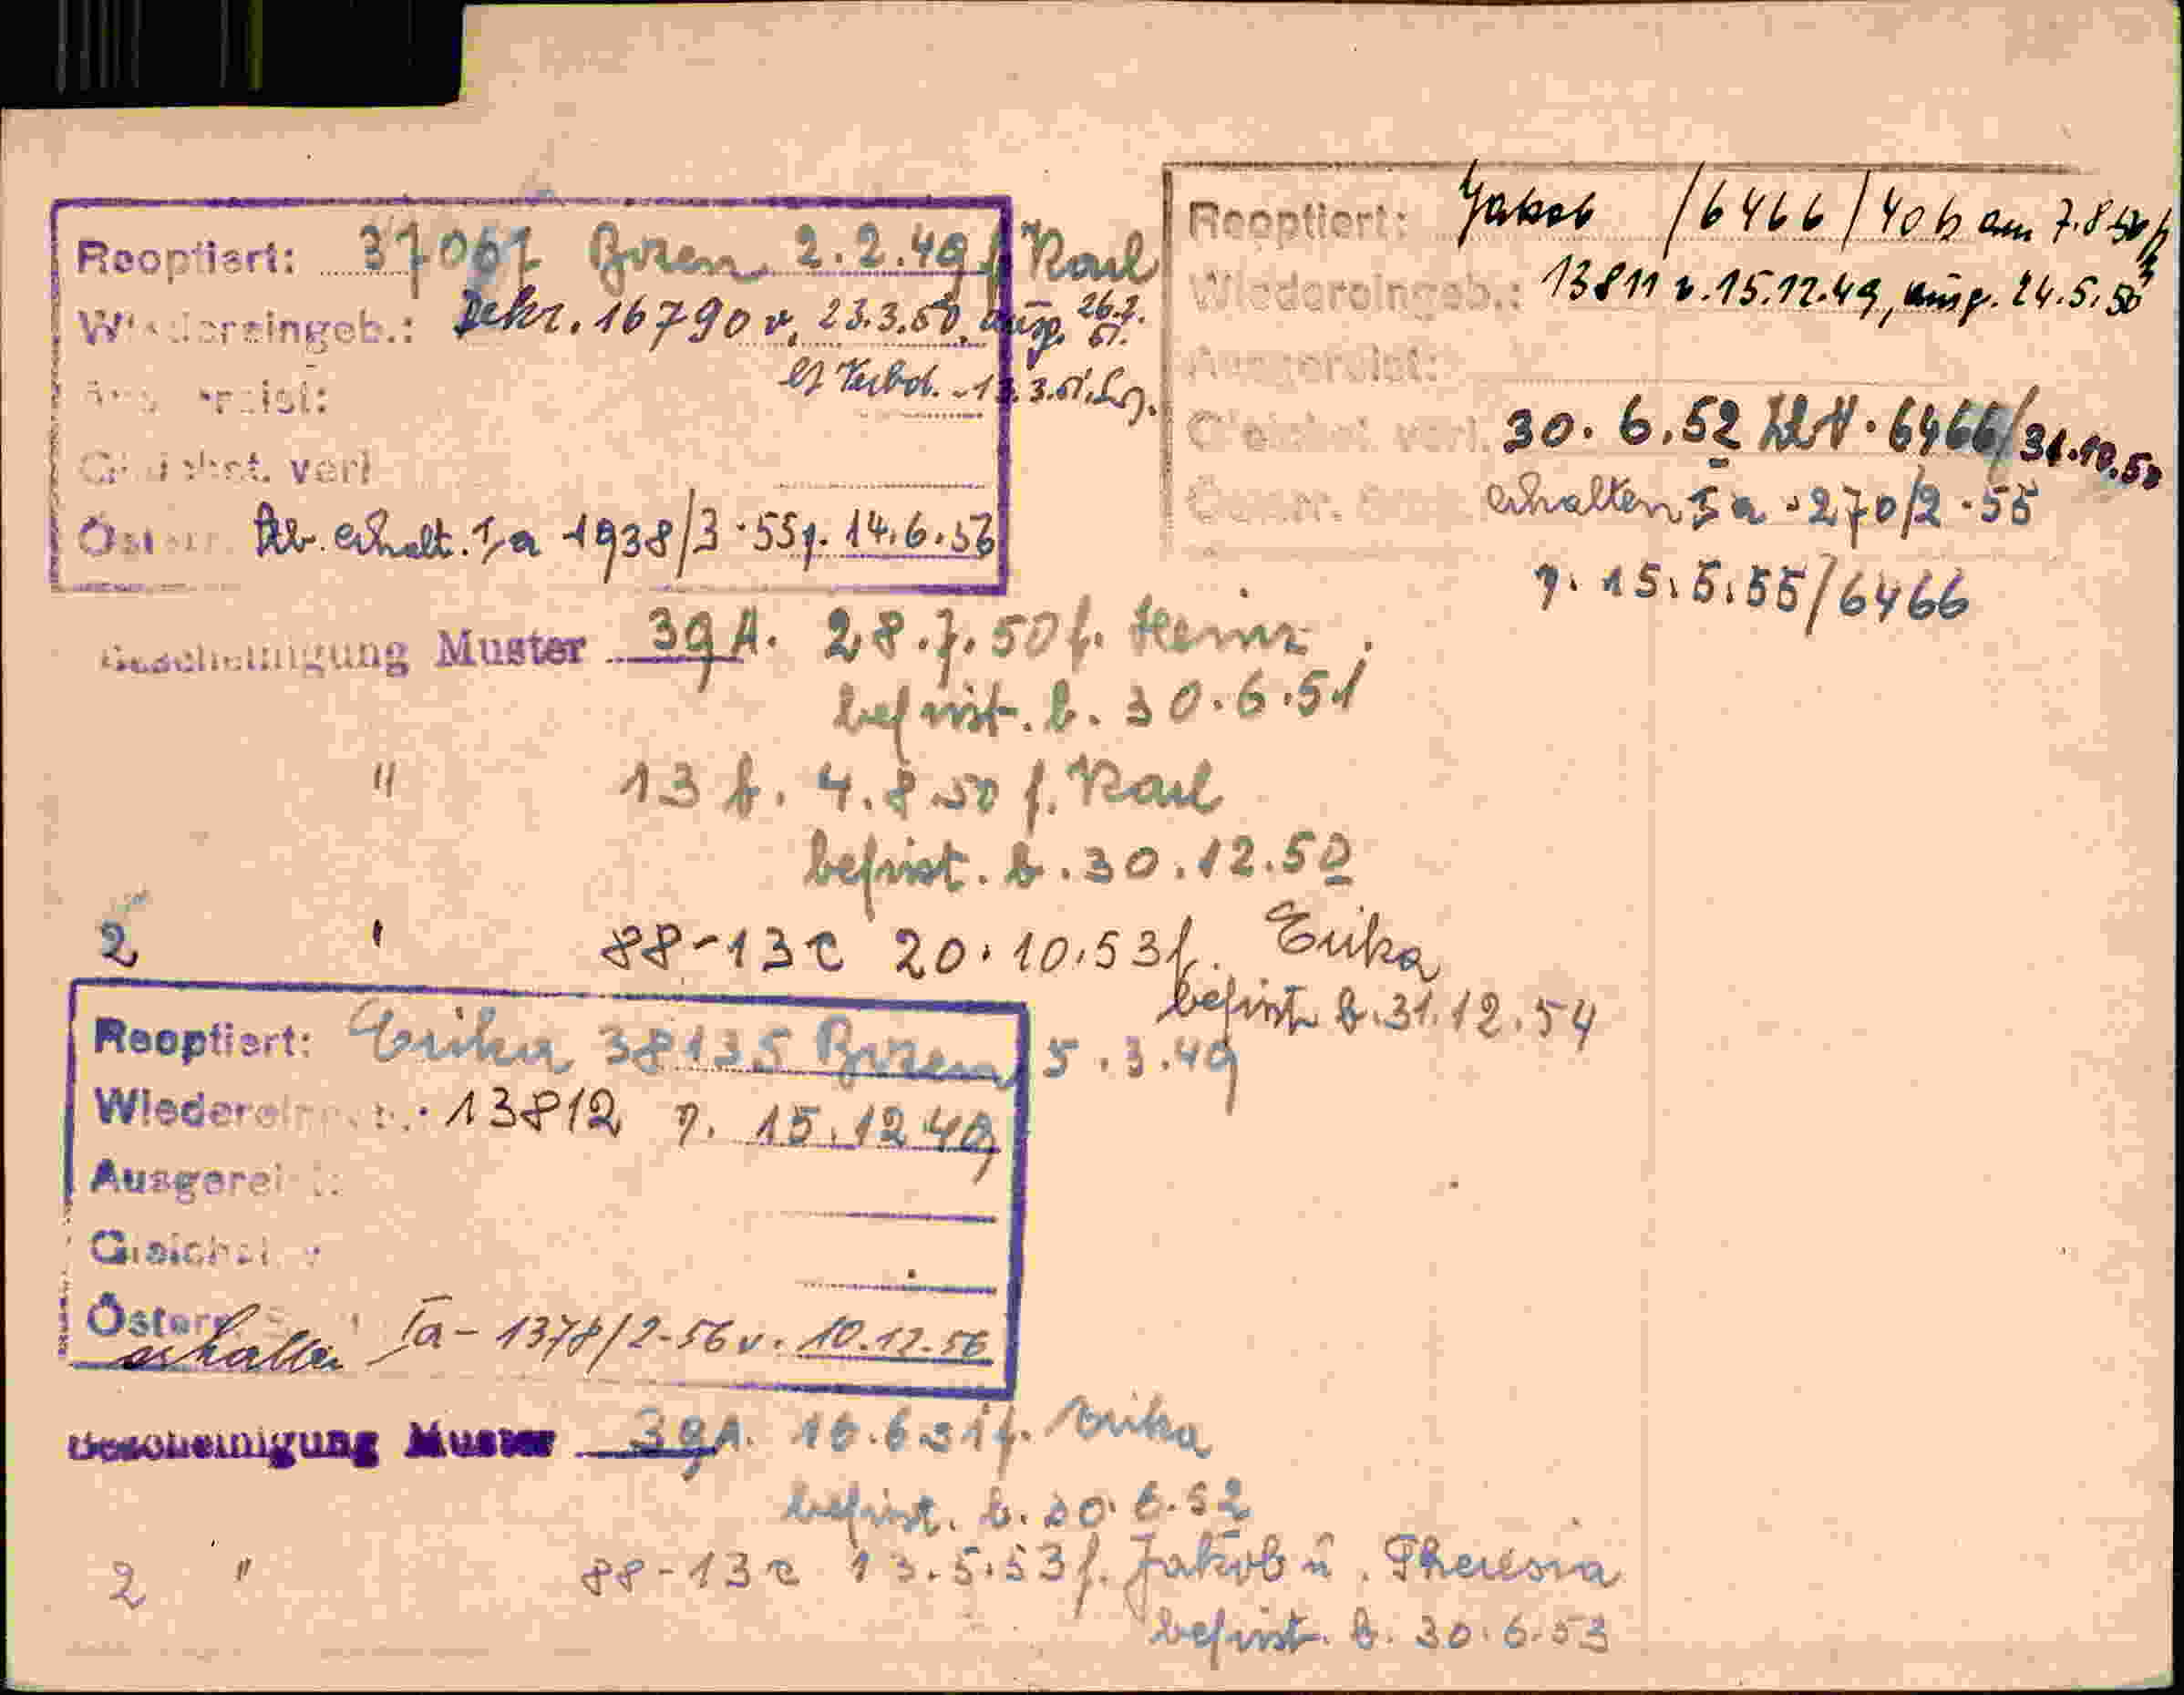 Reoptiert: 37067 Bozen 2.2.49 f. Karl
Wiedereingeb.: Dekr. 16790 v. 23.3.50, ausg. 26.7.
3.51.
Gleichst. verl
Österr. erhalt. I/a 1938/3-55 v. 14.6.56
Reoptiert: Jakob /6466/40b am 7.8.50
Wiedereingeb.: 13811 v. 15.12.49, ausg. 24.5.50
Ausgereist:
Gleichst. verl. 30.6.52 6466/31.12.52
erhalten I a - 270/2 - 55
v. 15.5.55/6466
Bescheinigung Muster 39A. 28.7.50 f. Heinz
befrist. b. 30.6.51
" 13 b. 4.8.50 f. Karl
befrist. b. 30.12.50
2 " 88-13c 20.10.53 f. Erika
befrist. b. 31.12.54
Reoptiert: Erika 38135 Bozen, 5.3.49
Wiedereingeb.: 13812 v. 15.12.49
Ausgereist:
Gleichst. v
Österr.
erhalten Ia - 1378/2-56 v. 10.12.56
Bescheinigung Muster 39A. 16.6.51 f. Erika
befrist. b. 30.6.52
2 " 88-13c 13.5.53 f. Jakob u. Theresia
befrist. b. 30.6.53